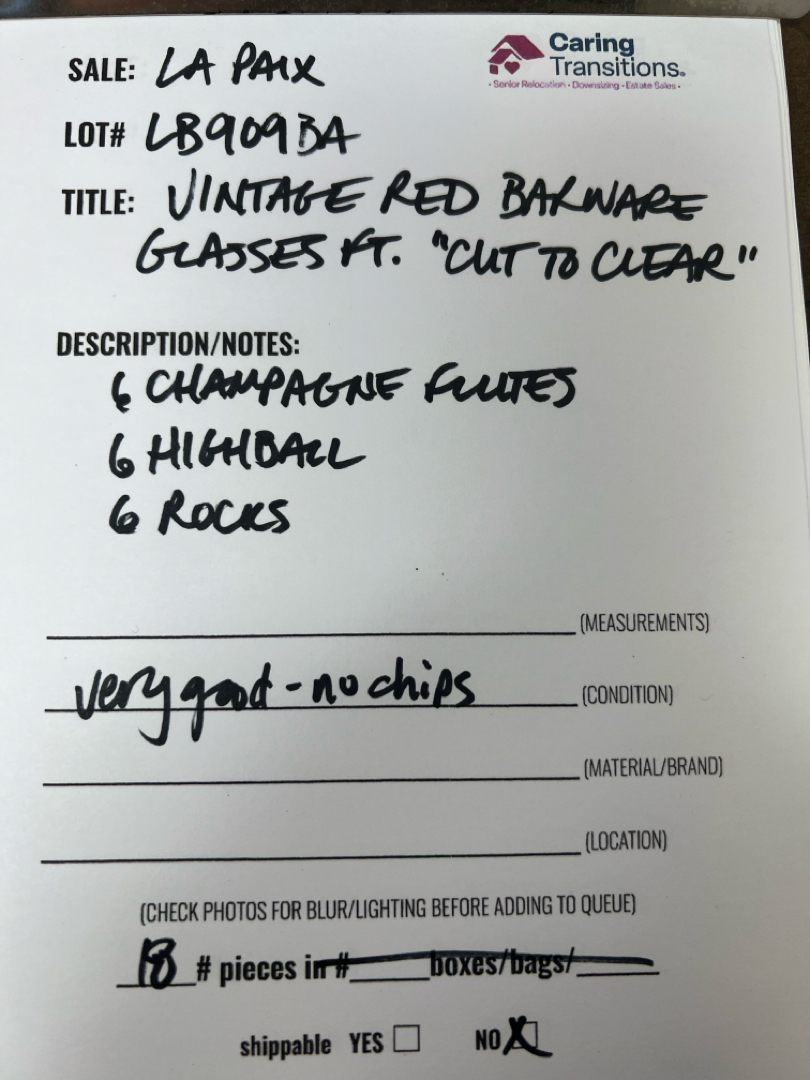 Caring
Transitions.
• Senior Relocation • Downsizing • Estate Sales •
SALE: LA PAIX
LOT# LB909BA
TITLE: VINTAGE RED BARWARE
GLASSES FT. "CUT TO CLEAR"
DESCRIPTION/NOTES:
6 CHAMPAGNE FLUTES
6 HIGHBALL
6 ROCKS
(MEASUREMENTS)
very good - no chips (CONDITION)
(MATERIAL/BRAND)
(LOCATION)
(CHECK PHOTOS FOR BLUR/LIGHTING BEFORE ADDING TO QUEUE)
18 # pieces in # boxes/bags/
shippable YES NO X